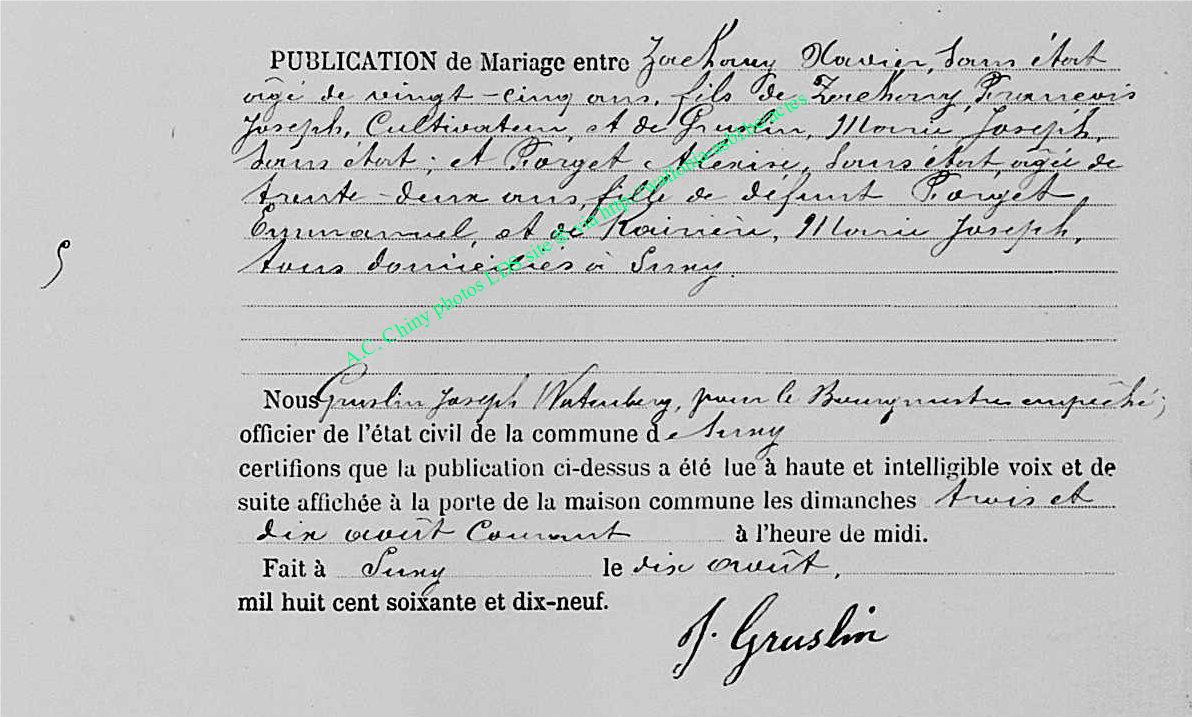 PUBLICATION de Mariage entre Zachary Xavier, sans état
âgé de vingt-cinq ans, fils de Zachary, François
Joseph, Cultivateur, et de Gruslin, Marie Joseph,
sans état; et Forget sans état, âgée de
trente-deux ans, fille de défunt Forget
Emmanuel, et de Marie Joseph,
tous domiciliés à Suxy.
5
Nous Gruslin Joseph pour le Bourgmestre empêché;
officier de l'état civil de la commune de Suxy
certifions que la publication ci-dessus a été lue à haute et intelligible voix et de
suite affichée à la porte de la maison commune les dimanches trois et
dix août Courant à l'heure de midi.
Fait à Suxy le dix août,
mil huit cent soixante et dix-neuf.
J. Gruslin
A.C. Chiny photos LDS site et via